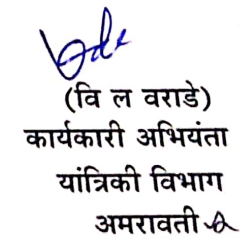 (वि ल वराडे)
कार्यकारी अभियंता
यांत्रिकी विभाग
अमरावती